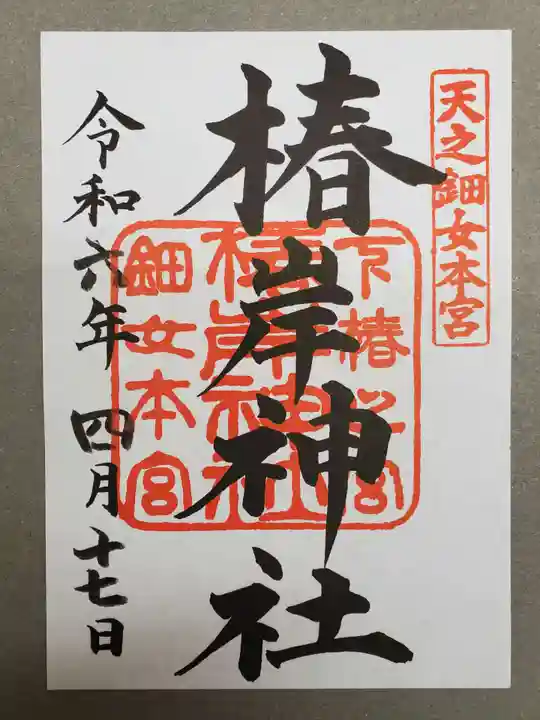 天之鈿女本宮
椿岸神社
下椿之宮
椿岸神社
鈿女本宮
令和六年 四月十七日